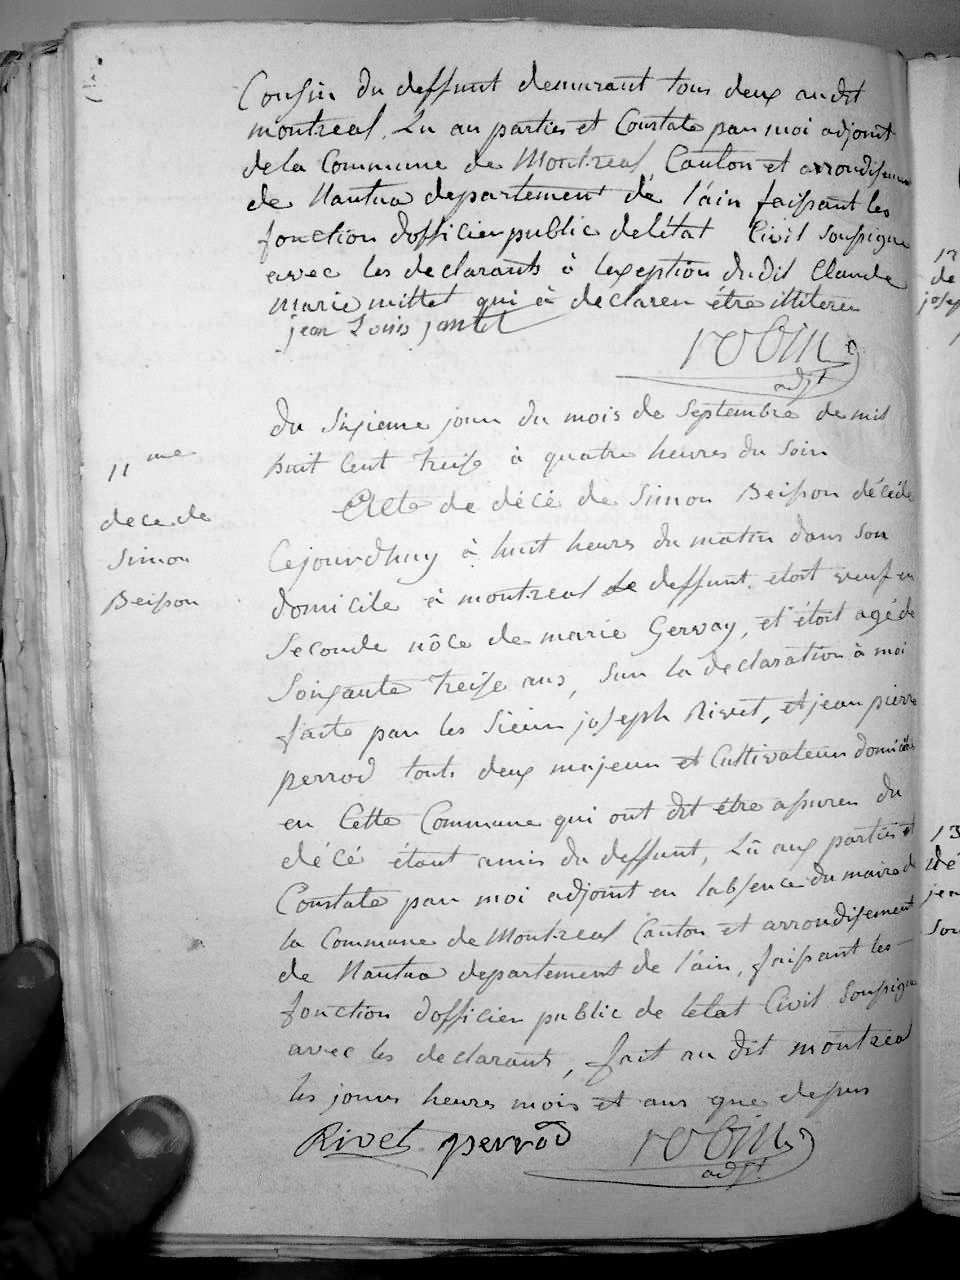 Cousin du deffunt demurant tous deux audt
montreal. Lu au parties et Constate par moi adjoint
de la Commune de Montreal, Canton et arrondisemen
de Nantua departement de l'ain faissant les
fonction d'officier public de l'état Civil soussigne
avec les declarants à lexception dudit Claude
marie mittet qui à declarer être illiterer
jean Louis jantet
robin
adjt
du sixieme jour du mois de septembre de mil
huit cent treise à quatre heures du soir
11me
decede
Simon
Beisson
Acte de décé de Simon Beisson décédé
Cejourdhuy à huit heures du matin dans son
domicile à montreal le deffunt etoit veuf en
seconde nôce de marie Gervay, et étoit agé de
soixante treise ans, sur la declaration à moi
faite par les Sieur joseph Rivet, et jean pierre
perrod touts deux majeur et Cultivateur domiciliés
en Cette Commune qui ont dit être assurer du
décé étant amis du deffunt, Lû aux parties et
Constate par moi adjoint en labsence du maire de
la Commune de Montreal Canton et arrondisement
de Nantua departement de l'ain, faissant les
fonction d'officier public de letat Civil soussigne
avec les declarants, fait au dit montreal
les jours heures mois et ans que dessus
Rivet perrod robin
adjt
13
de
josep
13
dé
jea